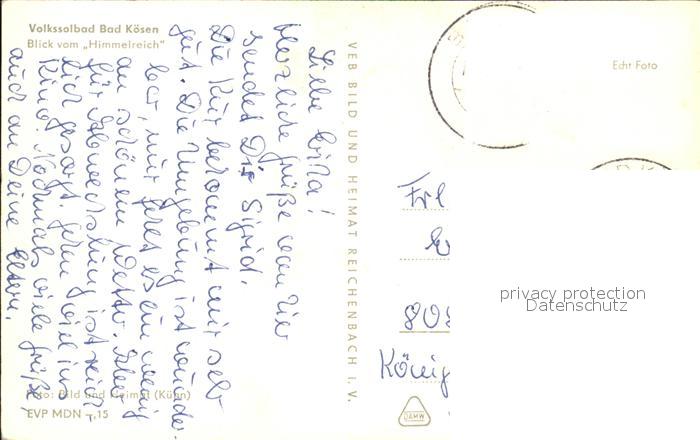 Volkssolbad Bad Kösen
Blick vom „Himmelreich"
Liebe
Herzliche Grüße von hier
sendet Dir Sigrid.
Die Kur bekommt mir sehr
gut. Die Umgebung ist wunder-
bar, nur fehlt es ein wenig
an schönem Wetter. Aber
für Abwechslung ist reich-
lich gesorgt. Gehen viel ins
Kino. Nochmals viele Grüße,
auch an Deine Eltern.
Foto: Bild und Heimat (Kühn)
EVP MDN –,15
VEB BILD UND HEIMAT REICHENBACH I. V.
Echt Foto
Frl
80
König
DAMW
privacy protection
Datenschutz